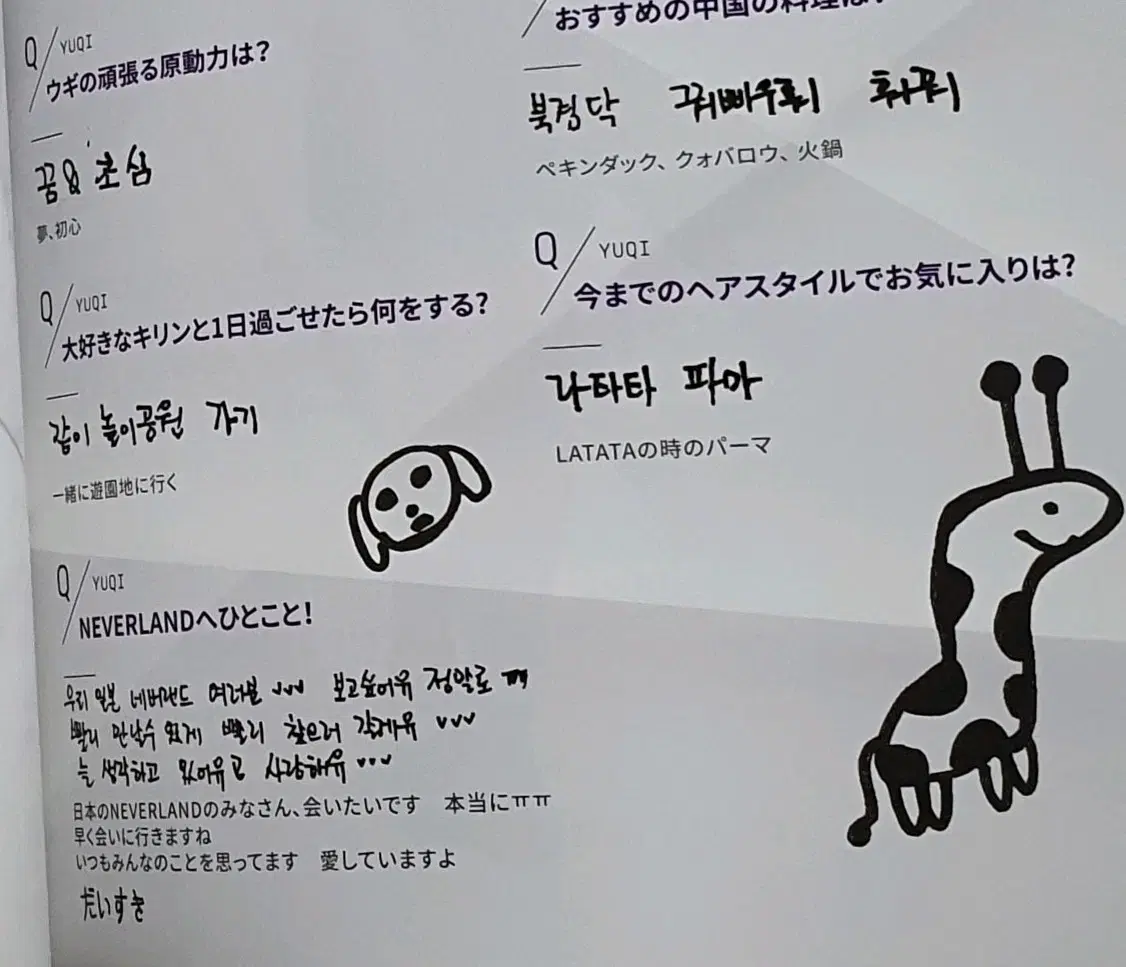 Q/YUQI
ウギの頑張る原動力は?
꿈& 초심
夢、初心
Q/YUQI
大好きなキリンと1日過ごせたら何をする?
같이 놀이공원 가기
一緒に遊園地に行く
Q/YUQI
NEVERLANDへひとこと!
우리 일본 네버랜드 여러분 ♥♥♥ 보고싶어유 정말로 ㅠㅠ
빨리 만날수 있게 빨리 찾으러 갈게유 ♥♥♥
늘 생각하고 있어유 사랑해유 ♥♥♥
日本のNEVERLANDのみなさん、会いたいです 本当にㅠㅠ
早く会いに行きますね
いつもみんなのことを思ってます 愛していますよ
だいすき
おすすめの中国の料理は?
북경닥 궈빠우뤄 훠궈
ペキンダック、クォバロウ、火鍋
Q/YUQI
今までのヘアスタイルでお気に入りは?
라타타 파마
LATATAの時のパーマ